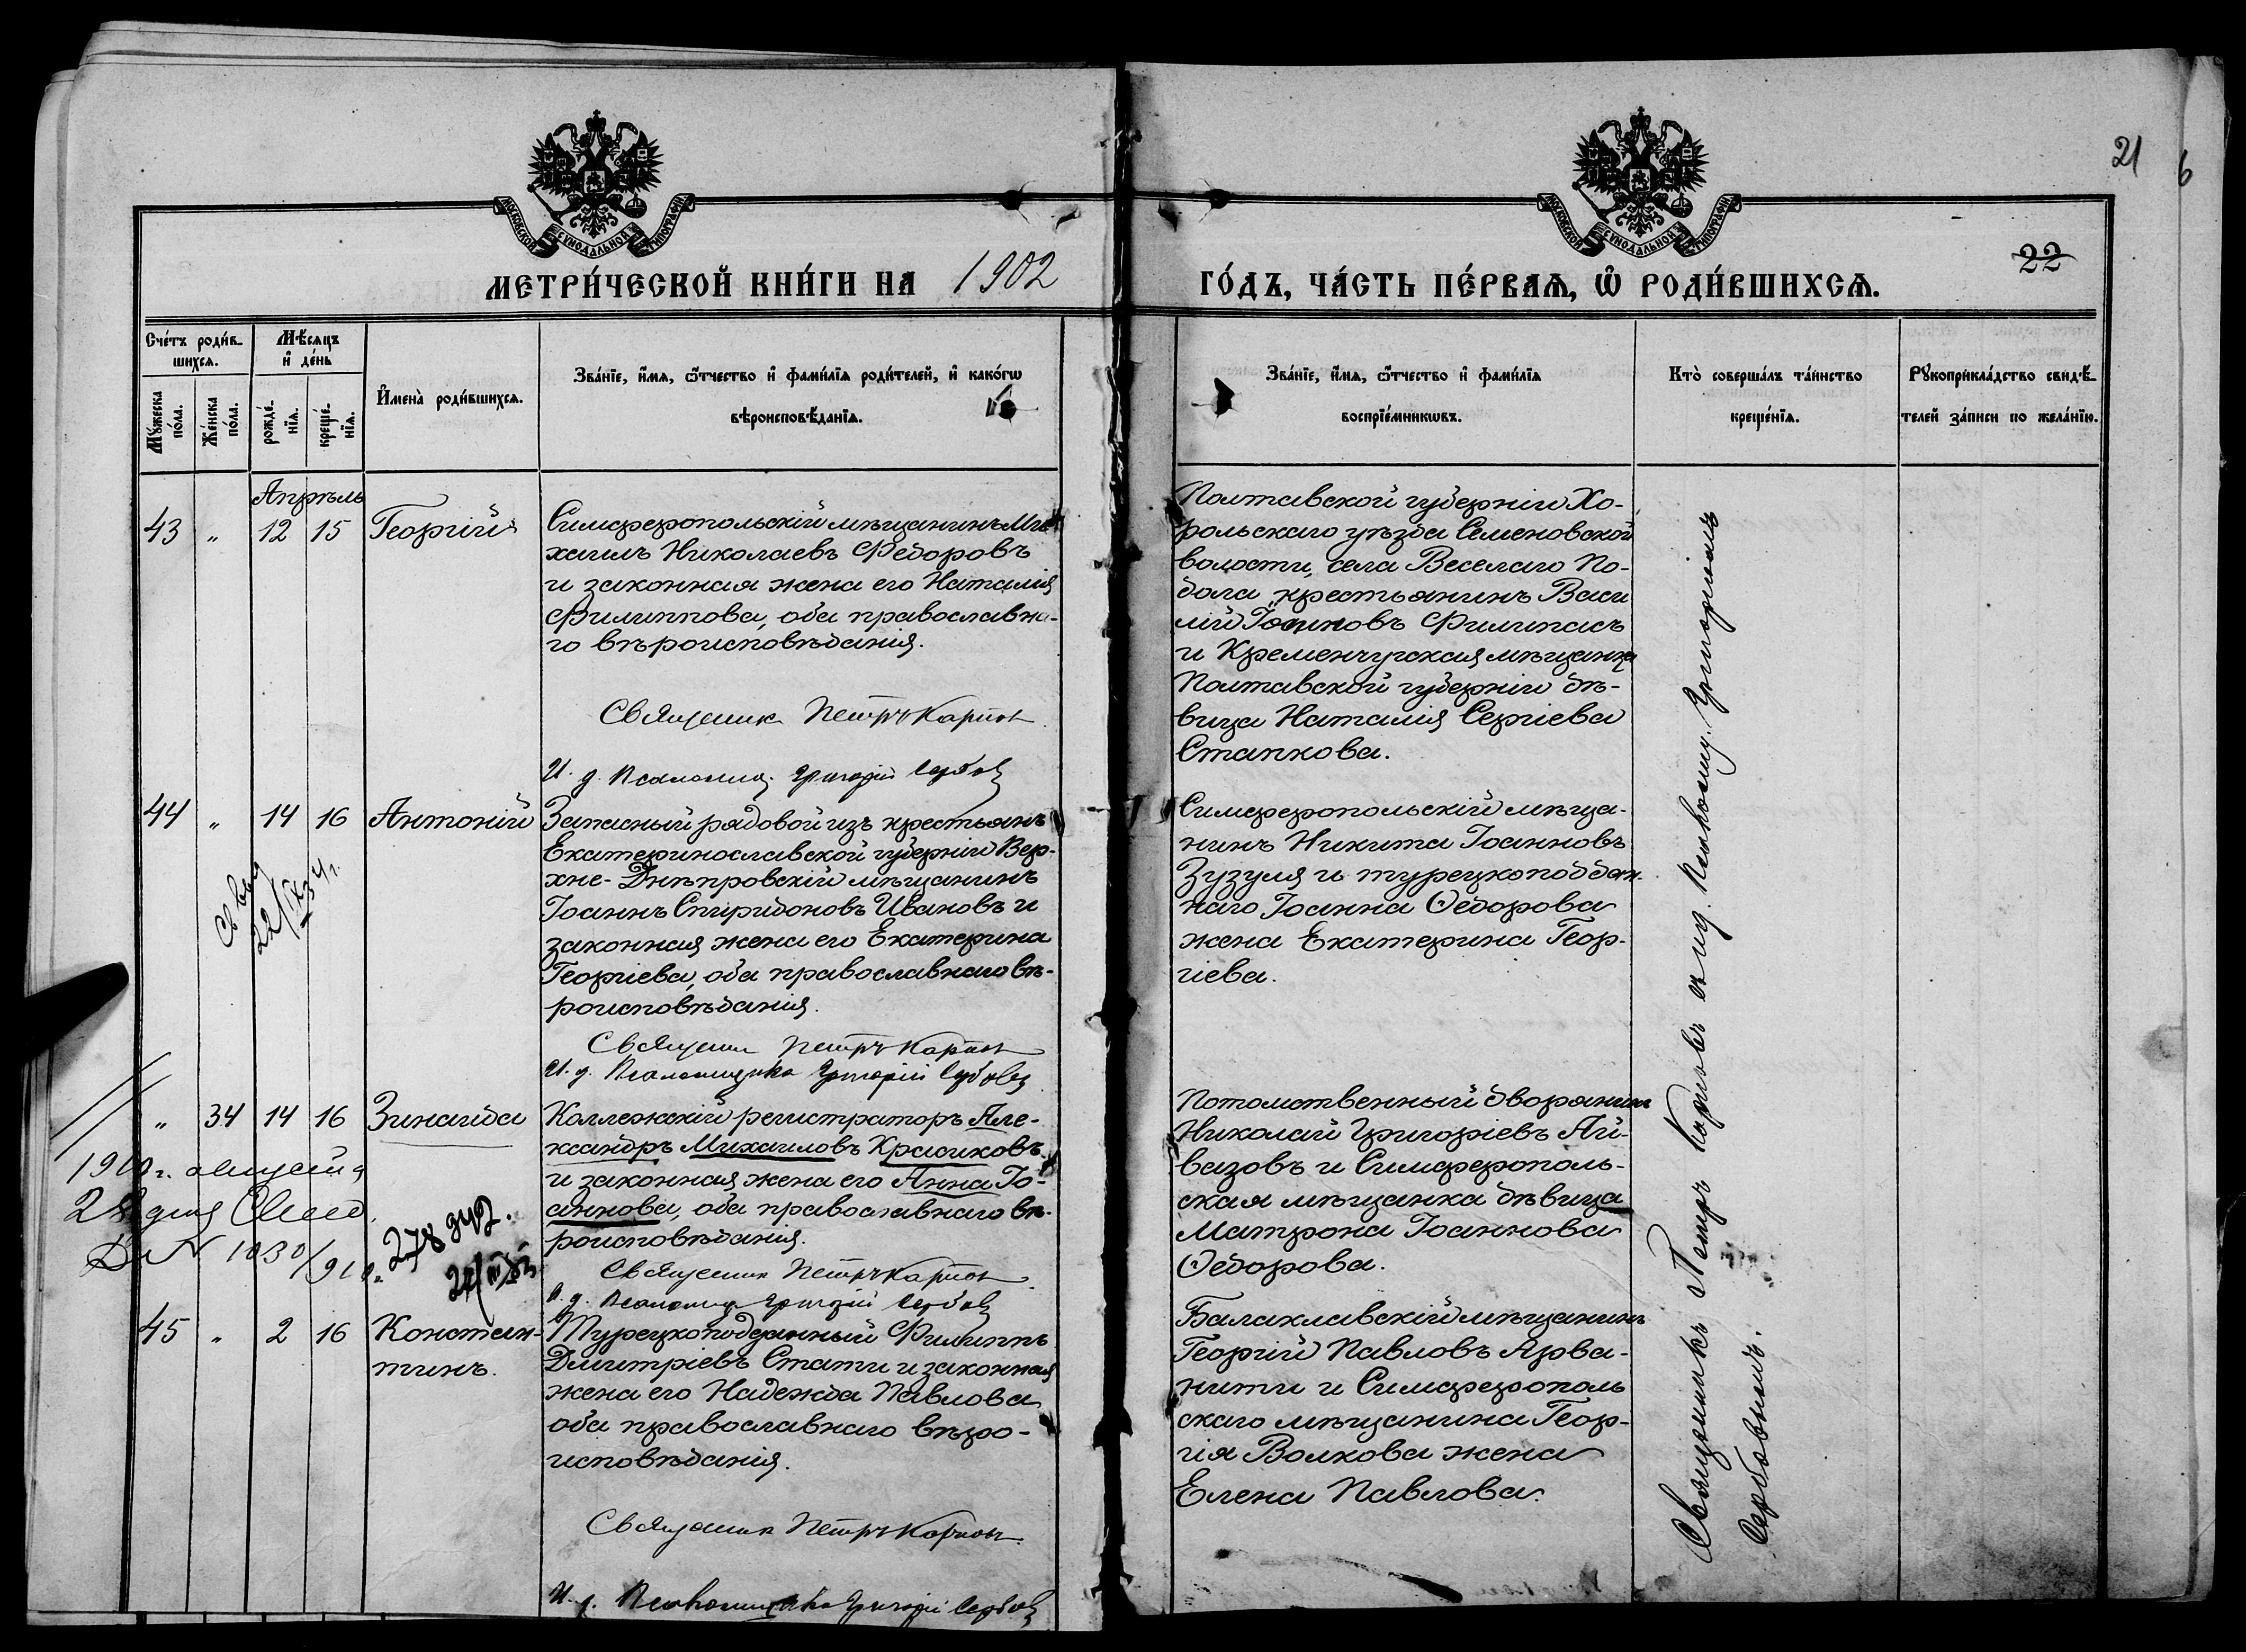 21
6
22
МОСКОВСКОЙ СѴНОДАЛЬНОЙ ТИПОГРАФІИ
МОСКОВСКОЙ СѴНОДАЛЬНОЙ ТИПОГРАФІИ
МЕТРИ́ЧЕСКОЙ КНИ́ГИ НА 1902
ГО́ДЪ, ЧА́СТЬ ПЕ́РВАѦ, Ѽ РОДИ́ВШИХСѦ.
Сче́тъ роди́в-
шихсѧ.
Мѣ́сѧцъ
и҆ де́нь
Мꙋ́жеска
по́ла.
Же́нска
по́ла.
рожде́-
нїѧ.
креще́-
нїѧ.
И҆мена̀ роди́вшихсѧ.
Зва́нїе, и҆́мѧ, ѻ҆́тчество и҆ фами́лїѧ роди́телей, и҆ како́гѡ
вѣроисповѣ́данїѧ.
Зва́нїе, и҆́мѧ, ѻ҆́тчество и҆ фами́лїѧ
воспрїе́мникѡвъ.
Кто̀ соверша́лъ та́инство
креще́нїѧ.
Рꙋкоприкла́дство свидѣ́-
телей за́писи по жела́нїю.
Апрѣль
43 " 12 15 Георгій
Симферопольскій мѣщанинъ Ми-
хаилъ Николаевъ Федоровъ
и законная жена его Наталія
Филиппова, оба православна-
го вѣроисповѣданія.
Священник Петръ Карпов
И. д. Псаломщ. Григорій Сербов
Полтавской губерніи Хо-
рольскаго уѣзда Семеновской
волости, села Веселаго По-
дола крестьянинъ Васи
лій Іоанновъ Филипасъ
и Кременчугская мѣщанка
Полтавской губерніи дѣ-
вица Наталія Сергіева
Стапкова.
44 " 14 16 Антоній
Запасный рядовой изъ крестьянъ
Екатеринославской губерніи Вер-
хне-Днѣпровскій мѣщанинъ
Іоаннъ Спиридоновъ Ивановъ и
законная жена его Екатерина
Георгіева, оба православнаго вѣ-
роисповѣданія.
Священник Петръ Карпов
И. д. Псаломщика Григорій Сербовъ
Симферопольскій мѣща-
нинъ Никита Іоанновъ
Зузуля и турецкоподдан-
наго Іоанна Ѳедорова
жена Екатерина Геор-
гіева.
22/IX 34 г.
" 34 14 16 Зинаида
Коллежскій регистраторъ Але-
ксандръ Михаиловъ Красиковъ
и законная жена его Анна Іо-
аннова, оба православнаго вѣ-
роисповѣданія.
Священник Петръ Карпов
И. д. Псаломщ. Григорій Сербов
Потомственный дворянинъ
Николай Григоріевъ Ай-
вазовъ и Симферополь-
ская мѣщанка дѣвица
Матрона Іоаннова
Ѳедорова.
1910 г. августа
28 дня
№ 1030/910.
278
45 " 2 16 Констан-
тинъ.
Турецкоподданный Филиппъ
Дмитріевъ Стати и законная
жена его Надежда Павлова
оба православнаго вѣро-
исповѣданія.
Священник Петръ Карпов.
И. д. Псаломщика Григорій Сербов
Балаклавскій мѣщанинъ
Георгій Павловъ Арва-
нити и Симферополь
скаго мѣщанина Геор-
гія Волкова жена
Елена Павлова.
Священникъ Петръ Карповъ съ и. д. Псаломщ. Григоріемъ
Сербовымъ.